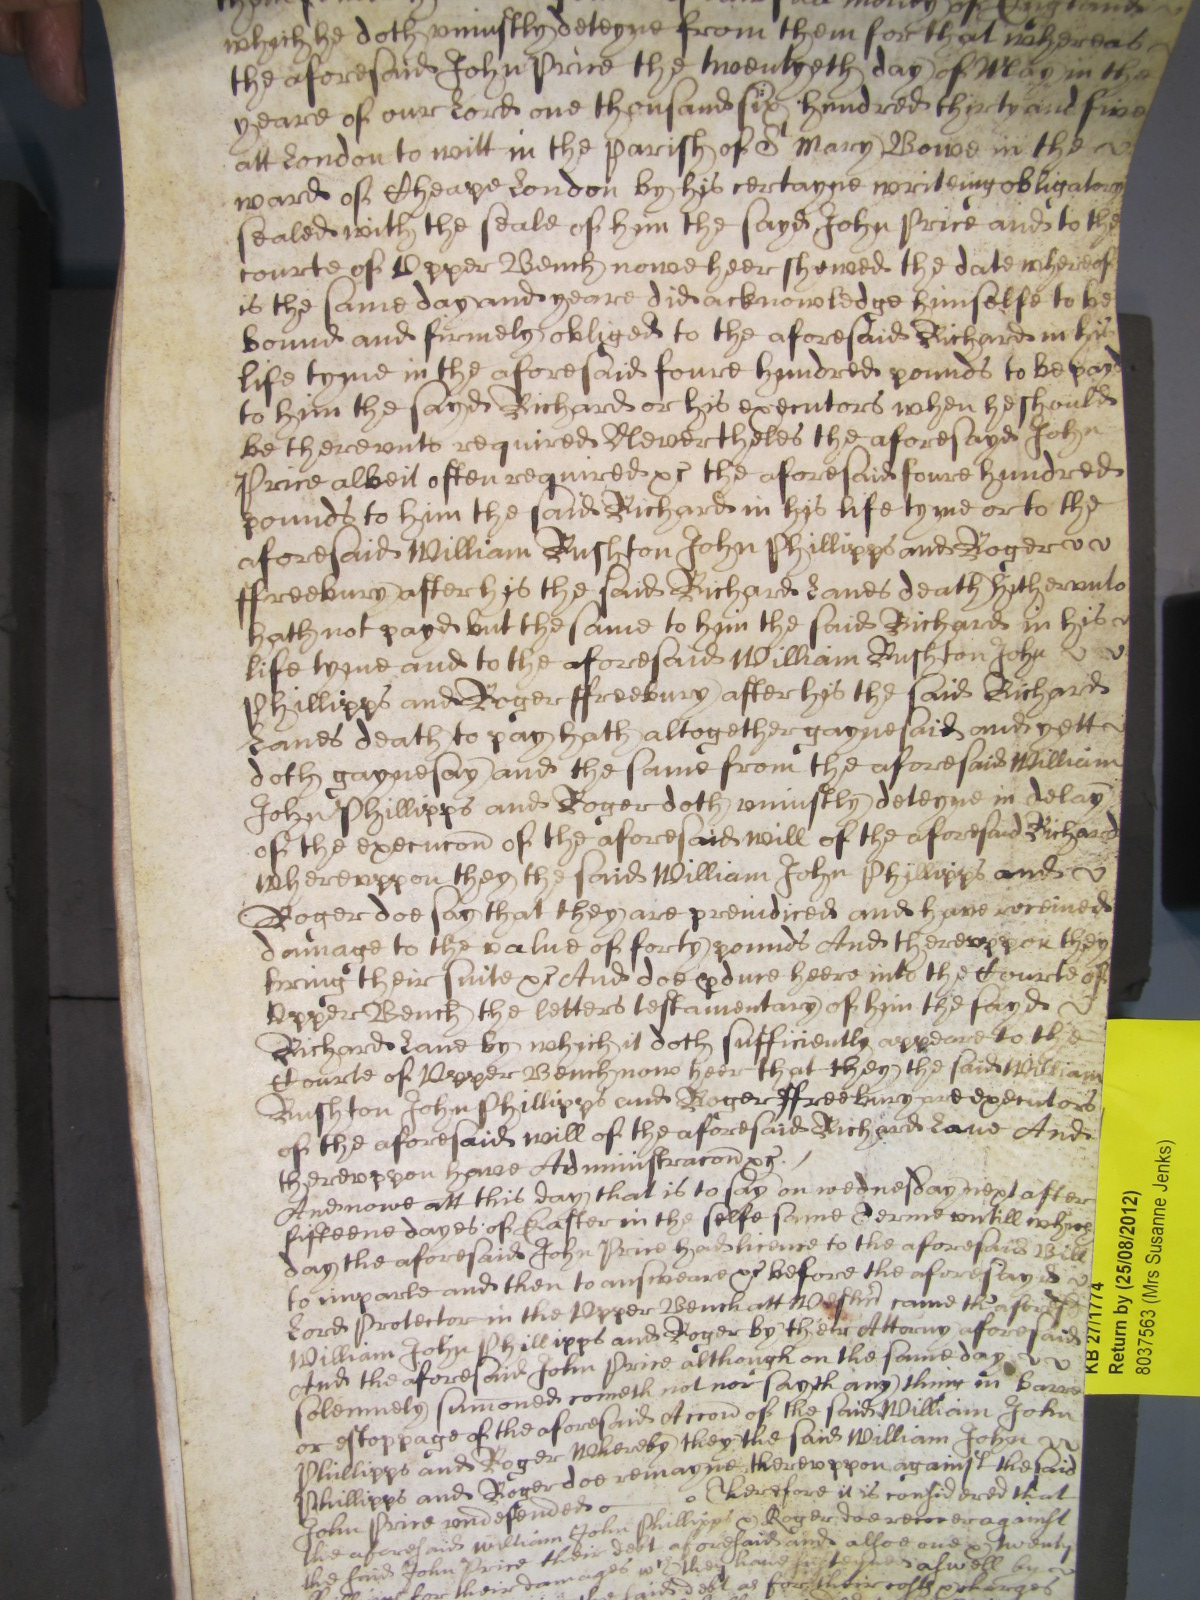 money of England
which he doth uniustly deteyne from them for that whereas
the aforesaid John Price the twentyeth day of May in the
yeare of our Lord one thousand six hundred thirty and five
att London to witt in the parish of St Mary Bowe in the
ward of Cheape London by his certayne writeing obligatory
sealed with the seale of him the sayd John Price and to the
courte of Upper Bench nowe heer shewed the date whereof
is the same day and yeare did acknowledge himselfe to be
bound and firmely obliged to the aforesaid Richard in his
life tyme in the aforesaid foure hundred pounds to be payd
to him the sayd Richard or his executors when he should
be therevnto required Nevertheles the aforesayd John
Price albeit often required &c the aforesaid foure hundred
pounds to him the said Richard in his life tyme or to the
aforesaid William Rushton John Phillipps and Roger
ffreebury after his the said Richard Lanes death hithervnto
hath not payd but the same to him the said Richard in his
life tyme and to the aforesaid William Rushton John
Phillipps and Roger ffreebury after his the said Richard
Lanes death to pay hath altogether gaynesaid and yett
doth gaynesay and the same from the aforesaid William
John Phillipps and Roger doth vniustly deteyne in delay
of the execucon of the aforesaid will of the aforesaid Richard
wherevppon they the said William John Phillipps and
Roger doe say that they are preiudiced and have received
damage to the value of forty pounds And therevppon they
bring their suite &c And doe pduce heere into the Courte of
Upper Bench the letters testamentary of him the sayd
Richard Lane by which it doth sufficiently appeare to the
Courte of Upper Bench now heer that they the said William
Rushton John Phillipps and Roger ffreebury are executors
of the aforesaid will of the aforesaid Richard Lane And
therevppon have Administracon &c.
And nowe att this day that is to say on wednesday next after
fifteene dayes of Easter in the selfe same Terme vntill which
day the aforesaid John Price had licence to the aforesaid Bill
to imparle and then to answeare &c before the aforesayd
Lord Protector in the Upper Bench att Westmr came the aforesd
William John Phillipps and Roger by their Attorny aforesaid
And the aforesaid John Price although on the same day
solemnely sumoned cometh not nor sayth any thing in barre
or estoppage of the aforesaid Accon of the said William John
Phillipps and Roger Whereby they the said William John
Phillipps and Roger doe remayne therevppon against the said
John Price vndefended Therefore it is considered that
the aforesaid William John Phillipps & Roger doe recover against
the said John Price their debt aforesaid and allsoe one & twenty
for their damages wch they have susteyned aswell by
said debt as for their costs & charges
KB 27/1774
Return by (25/08/2012)
8037563 (Mrs Susanne Jenks)